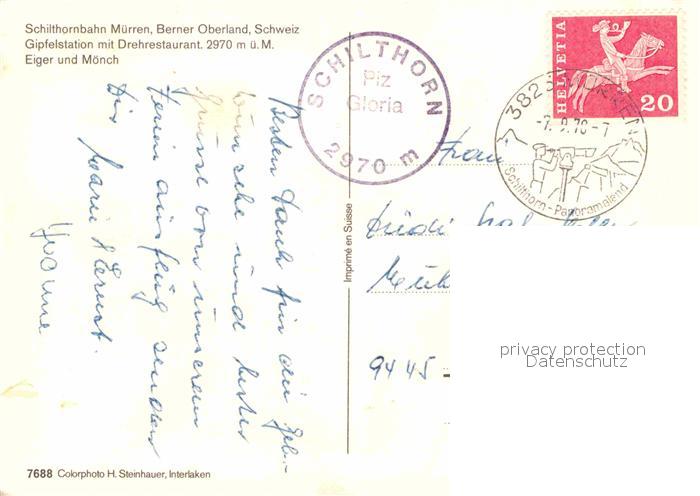 Schilthornbahn Mürren, Berner Oberland, Schweiz
Gipfelstation mit Drehrestaurant. 2970 m ü. M.
Eiger und Mönch
SCHILTHORN
Piz
Gloria
2970 m
HELVETIA
20
3825 MÜRREN
-7.9.76-7
Schilthorn-Panoramaland
Besten Dank für die Geb.-
wünsche und liebe
Grüsse von unserem
Ferienausflug senden
Dir Marie & Ernst.
Yvonne
Imprimé en Suisse
Frau
9445
privacy protection
Datenschutz
7688 Colorphoto H. Steinhauer, Interlaken